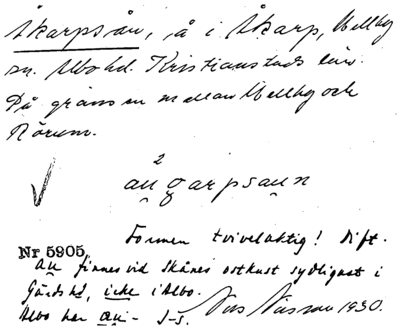 Åkarpsån, å i Åkarp, Mellby
sn. Albo hd. Kristianstads län.
På gränsen mellan Mellby och
Rörum.
2
au̯g̥arpsau̯n
Formen tvivelaktig! Dift.
Nr 5905
au̯ finnes vid Skånes ostkust sydligast i
Gärds hd, icke i Albo.
Albo har au̯ - I-S.
Nils Nilsson 1930.